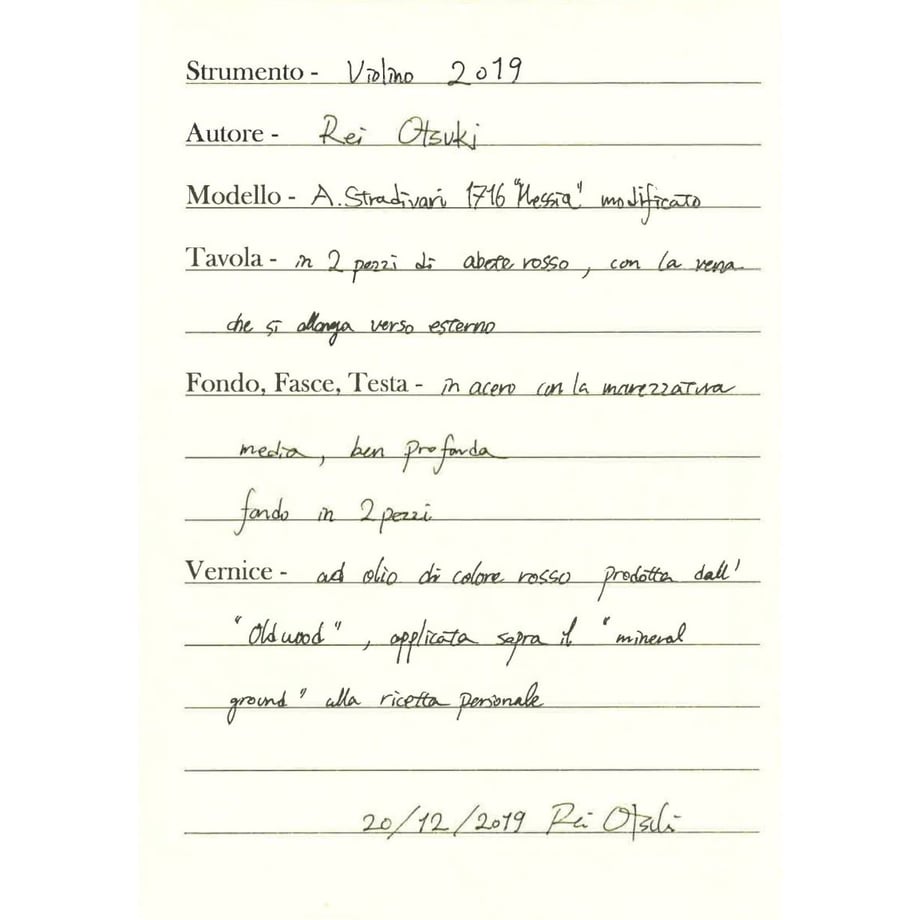 Strumento - Violino 2019
Autore - Rei Otsuki
Modello - A. Stradivari 1716 "Messia" modificato
Tavola - in 2 pezzi di abete rosso, con la vena
che si allonga verso esterno
Fondo, Fasce, Testa - in acero con la marezzatura
media, ben profonda
fondo in 2 pezzi
Vernice - ad olio di colore rosso prodotta dall'
"Old wood", applicata sopra il "mineral
ground" alla ricetta personale
20/12/2019 Rei Otsuki